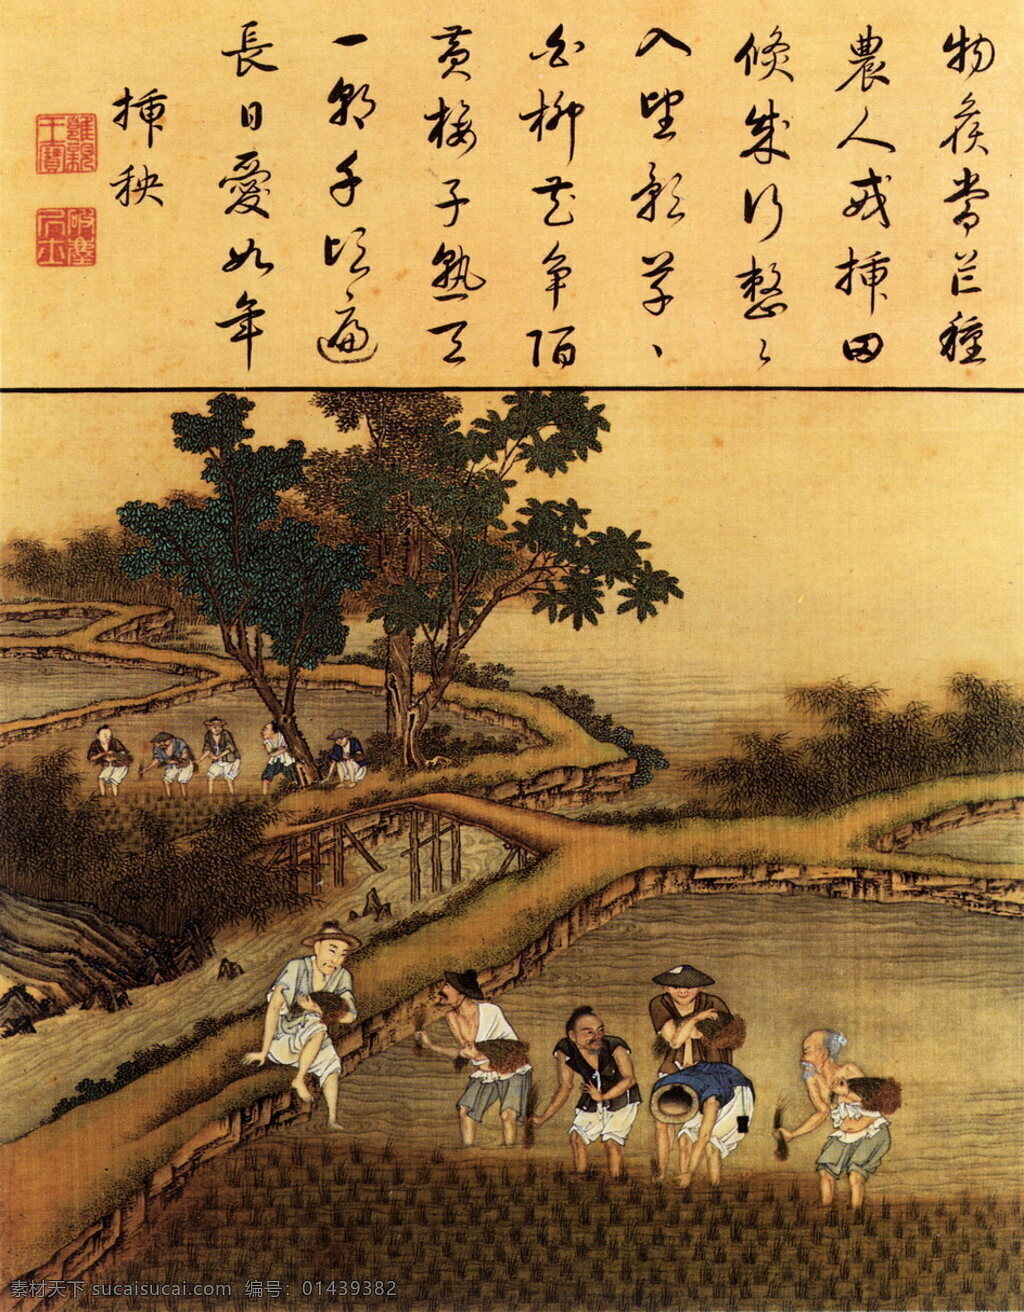 物候當芒種
農人或插田
倐成行整〻
入望影芊〻
白柳花爭陌
黃梅子熟天
一朝千頃遍
長日愛如年
插秧
雍親王寶
破塵居士
素材天下 sucaisucai.com 编号：01439382